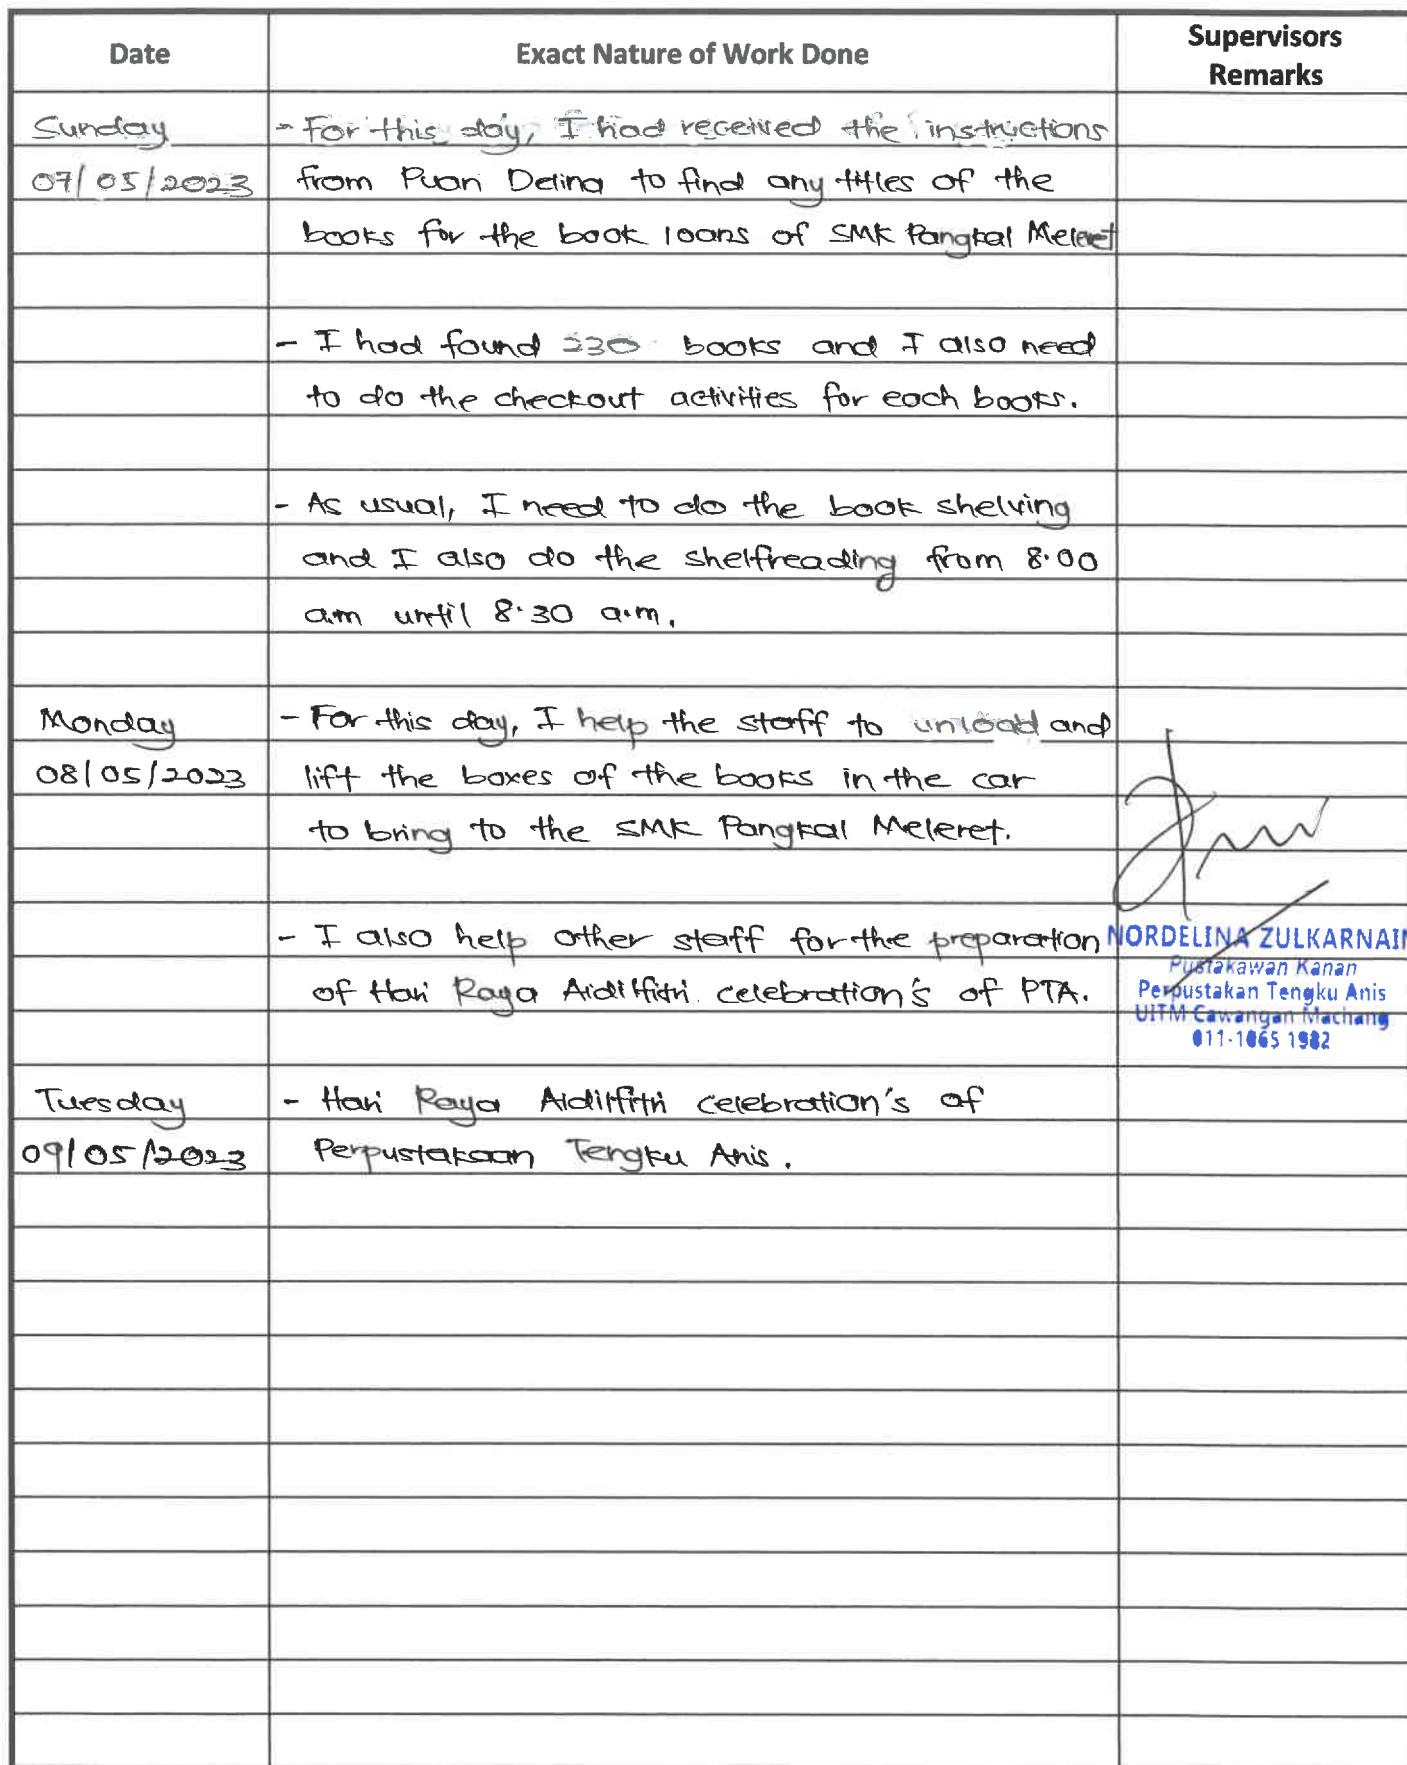 Date
Exact Nature of Work Done
Supervisors
Remarks
Sunday
07/05/2023
- For this day, I had received the instructions
from Puan Delina to find any titles of the
books for the book loans of SMK Pangkal Meleret
- I had found 230 books and I also need
to do the checkout activities for each books.
- As usual, I need to do the book shelving
and I also do the shelfreading from 8.00
a.m until 8.30 a.m.
Monday
08/05/2023
- For this day, I help the staff to unload and
lift the boxes of the books in the car
to bring to the SMK Pangkal Meleret.
- I also help other staff for the preparation
of Hari Raya Aidilfitri celebration's of PTA.
NORDELINA ZULKARNAIN
Pustakawan Kanan
Perpustakan Tengku Anis
UITM Cawangan Machang
011-1065 1982
Tuesday
09/05/2023
- Hari Raya Aidilfitri celebration's of
Perpustakaan Tengku Anis.